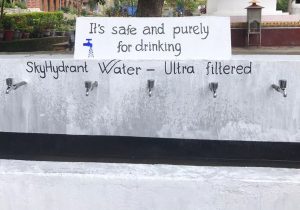 It's safe and purely
for drinking
SkyHydrant Water – Ultra filtered